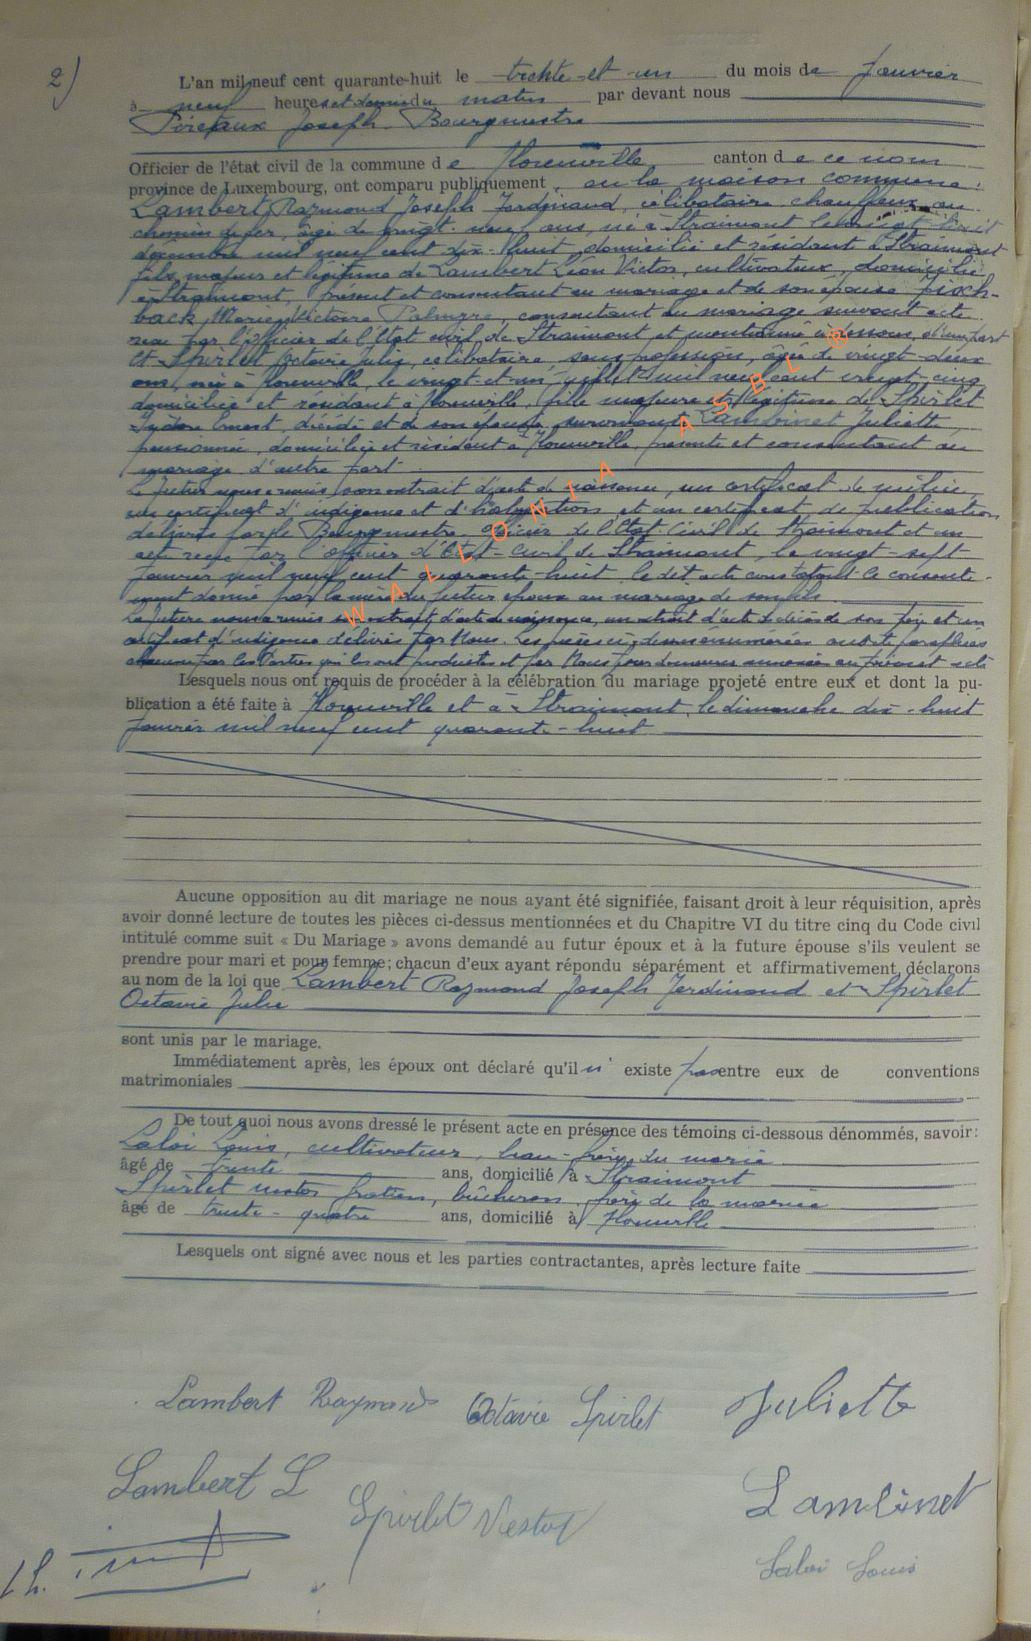 2)
L'an mil neuf cent quarante-huit le trente-et-un du mois de Janvier
à neuf heures et demie du matin par devant nous
Joseph Bourgmestre
Officier de l'état civil de la commune de canton de ce nom
province de Luxembourg, ont comparu publiquement, en la maison commune:
Lambert Raymond Joseph Ferdinand, célibataire, chauffeur au
chemin de fer, âgé de vingt-neuf ans, né à Straimont le vingt-huit
décembre mil neuf cent dix-huit, domicilié et résidant à Straimont
fils majeur et légitime de Lambert Léon Victor, cultivateur, domicilié
à Straimont, présent et consentant au mariage et de son épouse Fisch-
bach, Marie Victoire Palmyre, consentant au mariage suivant acte
reçu par l'officier de l'Etat civil de Straimont et mentionné ci-dessous, d'une part
Et Spirlet Octavie Julie, célibataire, sans profession, âgée de vingt-deux
ans, née à, le vingt-et-un juillet mil neuf cent vingt-cinq
domiciliée et résidant à, fille majeure et légitime de Spirlet
Isidore Ernest, décédé et de son épouse survivante Lambinet Juliette,
pensionnée, domiciliée et résidant à, présente et consentant au
mariage, d'autre part
Le futur nous a remis son extrait d'acte de naissance, un certificat de milice,
un certificat d'indigence et d'habitation et un certificat de publication
délivrés par le Bourgmestre, officier de l'Etat-Civil de Straimont et un
acte reçu par l'officier d'Etat-Civil de Straimont, le vingt-sept
Janvier mil neuf cent quarante-huit, le dit acte constatant le consente-
ment donné par la mère du futur époux au mariage de son fils
La future nous a remis son extrait d'acte de naissance, un extrait d'acte de décès de son père et un
certificat d'indigence délivrés par Nous. Les pièces ci-dessus énumérées ont été paraphées
chacune par les Parties qui les ont produites et par Nous pour demeurer annexées au présent acte
Lesquels nous ont requis de procéder à la célébration du mariage projeté entre eux et dont la pu-
blication a été faite à et à Straimont, le dimanche dix-huit
Janvier mil neuf cent quarante-huit
Aucune opposition au dit mariage ne nous ayant été signifiée, faisant droit à leur réquisition, après
avoir donné lecture de toutes les pièces ci-dessus mentionnées et du Chapitre VI du titre cinq du Code civil
intitulé comme suit « Du Mariage » avons demandé au futur époux et à la future épouse s'ils veulent se
prendre pour mari et pour femme; chacun d'eux ayant répondu séparément et affirmativement, déclarons
au nom de la loi que Lambert Raymond Joseph Ferdinand et Spirlet
Octavie Julie
sont unis par le mariage.
Immédiatement après, les époux ont déclaré qu'il n'existe pas entre eux de conventions
matrimoniales
De tout quoi nous avons dressé le présent acte en présence des témoins ci-dessous dénommés, savoir:
Laloi Louis, cultivateur, beau-frère du marié
âgé de trente ans, domicilié à Straimont
Spirlet, bûcheron, frère de la mariée
âgé de trente-quatre ans, domicilié à
Lesquels ont signé avec nous et les parties contractantes, après lecture faite
Lambert Raymond Octavie Spirlet Juliette
Lambert L Lambinet
Spirlet
Laloi Louis
WALLONIA ASBL ®